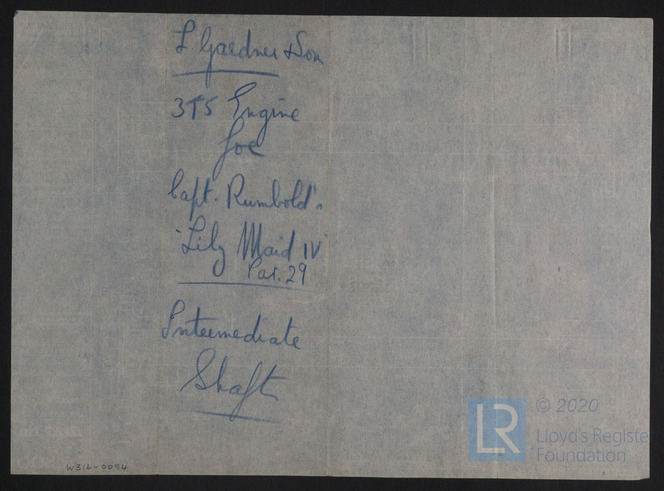 L Gardner & Son
3T5 Engine
for
Capt. Rumbold's
"Lily Maid IV"
Par. 29
Intermediate
Shaft
W316-0094
LR © 2020
Lloyd's Registe
Foundation